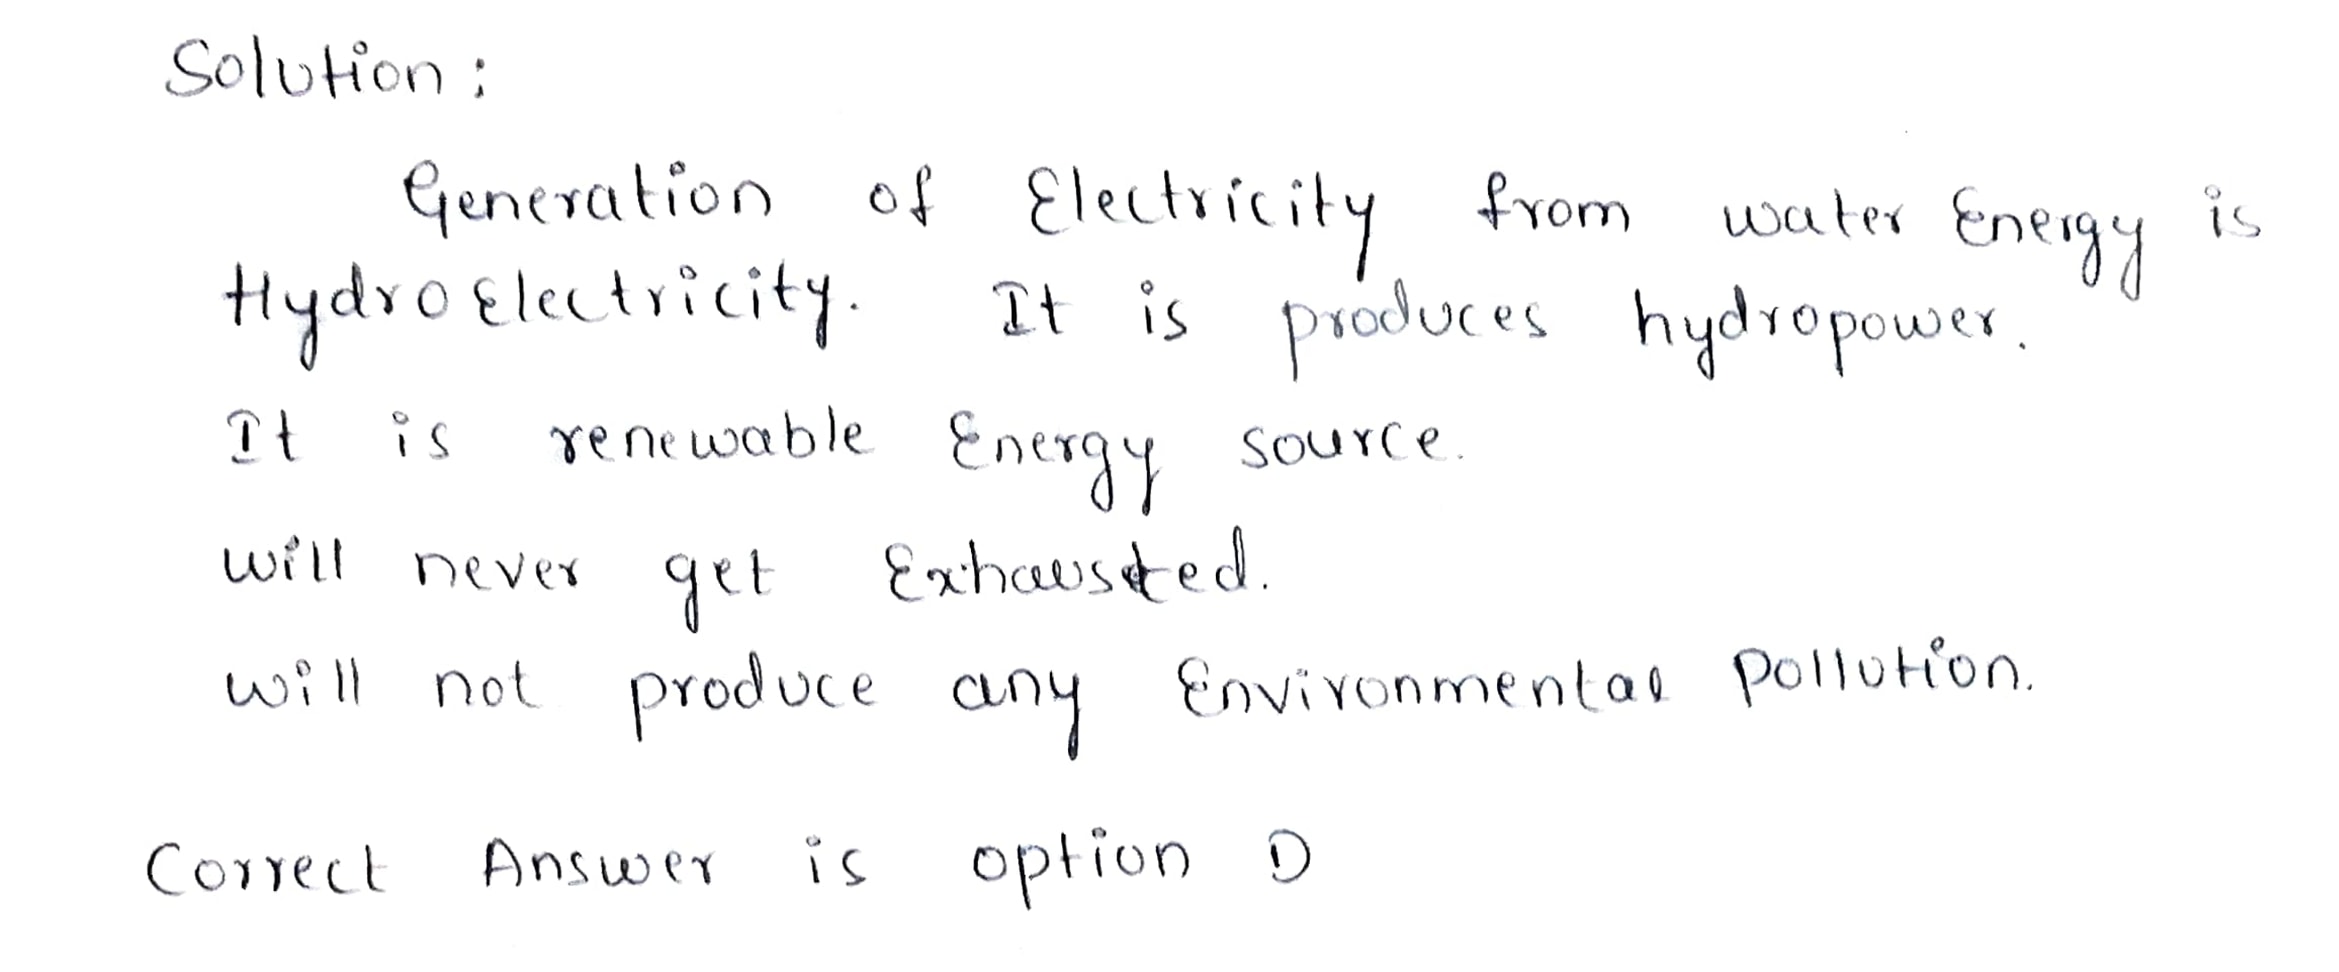 Solution:
Generation of Electricity from water Energy is
HydroElectricity. It is produces hydropower.
It is renewable Energy source.
will never get Exhausted.
will not produce any Environmental pollution.
Correct Answer is option D